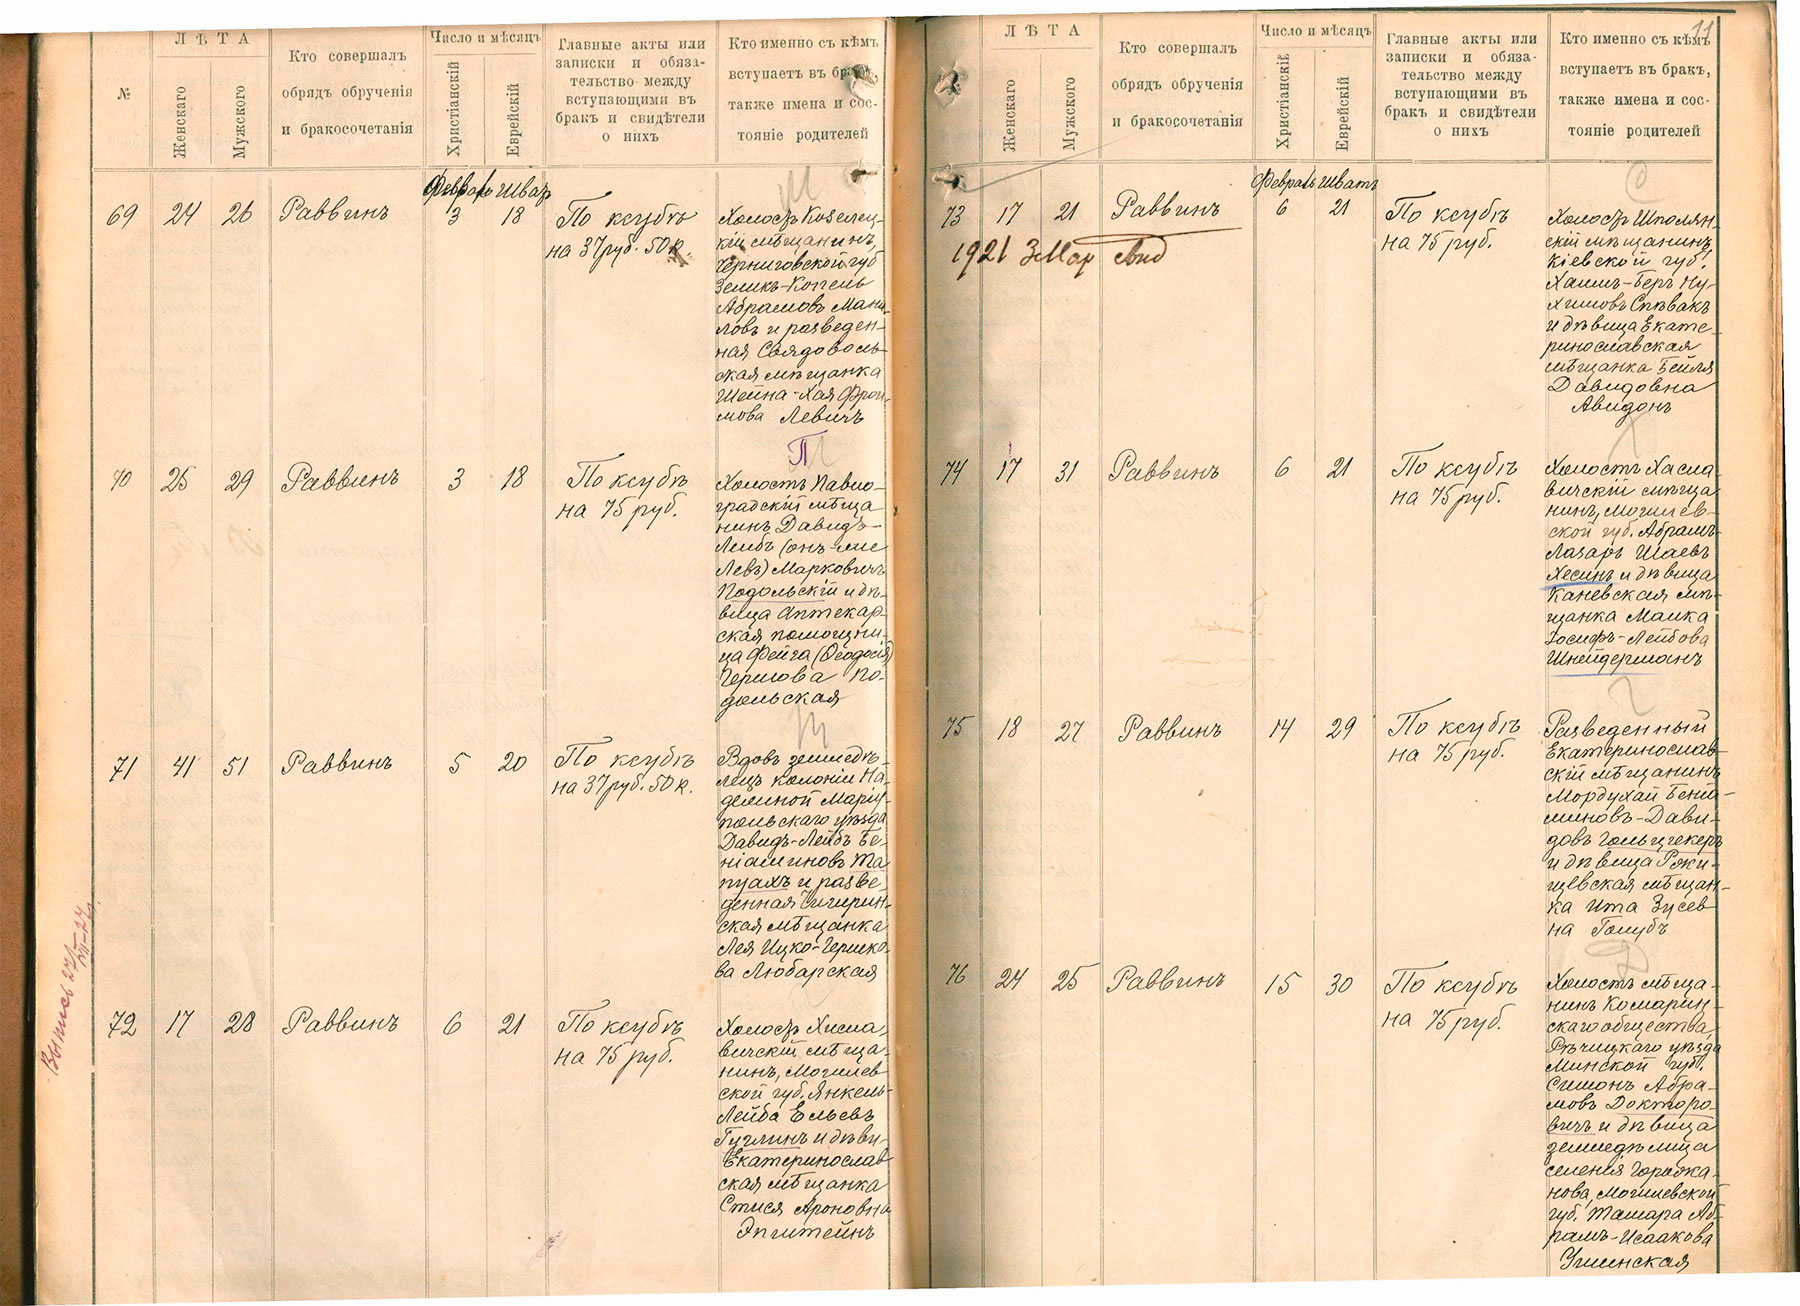 №
ЛѢТА
Женскаго
Мужского
Кто совершалъ
обрядъ обрученія
и бракосочетанія
Число и мѣсяцъ
Христіанскій
Еврейскій
Главные акты или
записки и обяза-
тельство между
вступающими въ
бракъ и свидѣтели
о нихъ
Кто именно съ кѣмъ
вступаетъ въ бракъ,
также имена и сос-
тояніе родителей
Февраль Шватъ
69 24 26 Раввинъ 3 18
По ксубѣ
на 37 руб. 50 к.
Холостъ Козелец-
кій мѣщанинъ,
Черниговской губ
Зеликъ-Копель
Абрамовъ Мани-
ловъ и разведен-
ная
ская мѣщанка
Шейна-Хая Фрои-
мова Левичъ
П
70 25 29 Раввинъ 3 18
По ксубѣ
на 75 руб.
Холостъ Павло-
градскій мѣща
нинъ Давидъ-
Лейбъ (онъ-же
Левъ) Марковичъ
Подольскій и дѣ-
вица аптекар-
ская помощни-
ца Фейга (Ѳеодосія)
Гершова По-
дольская
71 41 51 Раввинъ 5 20
По ксубѣ
на 37 руб. 50 к.
Вдовъ земледѣ-
лецъ колоніи На
дежной Маріу-
польскаго уѣзда
Давидъ-Лейбъ Бе-
ніаминовъ Та
пуахъ и разве-
денная Чигирин-
ская мѣщанка
Лея Ицко-Гершко-
ва Любарская
Выпись 27/VII-27г.
72 17 28 Раввинъ 6 21
По ксубѣ
на 75 руб.
Холостъ Хисла
вичскій мѣща-
нинъ, Могилев
ской губ. Янкель-
Лейба Ельевъ
Гуглинъ и дѣви-
Екатеринослав
ская мѣщанка
Стися Ароновна
Эпштейнъ
11
ЛѢТА
Женскаго
Мужского
Кто совершалъ
обрядъ обрученія
и бракосочетанія
Число и мѣсяцъ
Христіанскій
Еврейскій
Главные акты или
записки и обяза-
тельство между
вступающими въ
бракъ и свидѣтели
о нихъ
Кто именно съ кѣмъ
вступаетъ въ бракъ,
также имена и сос-
тояніе родителей
Февраль Шватъ
С
73 17 21 Раввинъ 6 21
1921 3 Мар свид
По ксубѣ
на 75 руб.
Холостъ Шполян-
скій мѣщанинъ,
Кіевской губ.
Хаимъ-Беръ Ну-
химовъ Спѣвакъ
и дѣвица Екате-
ринославская
мѣщанка Бейля
Давидовна
Авидонъ
74 17 31 Раввинъ 6 21
По ксубѣ
на 75 руб.
Холостъ Хасла-
вичскій мѣща
нинъ, Могилев-
ской губ. Абрамъ-
Лазарь Шаевъ
Хесинъ и дѣвица
Каневская мѣ-
щанка Малка
Іосифъ-Лейбова
Шнейдерманъ
75 18 27 Раввинъ 14 29
По ксубѣ
на 75 руб.
Разведенный
Екатеринослав-
скій мѣщанинъ
Мордухай Бенья-
миновъ-Дави-
довъ Гольцгекеръ
и дѣвица Рожи-
щевская мѣщан-
ка Ита Зусев
на Голубъ
76 24 25 Раввинъ 15 30
По ксубѣ
на 75 руб.
Холостъ мѣща-
нинъ Комарин-
скаго общества,
Рѣчицкаго уѣзда
Минской губ.
Симонъ Абра-
мовъ Докторо-
вичъ и дѣвица
земледѣлица
селенія
нова, Могилевской
губ. Тамара Аб-
рамъ-Исаакова
Ушинская